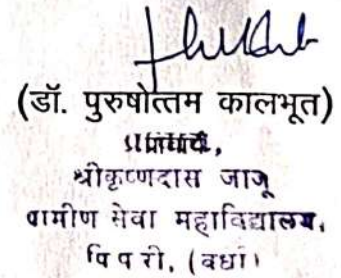 (डॉ. पुरुषोत्तम कालभूत)
श्रीकृष्णदास जाजू
ग्रामीण सेवा महाविद्यालय,
पिपरी, (वर्धा)